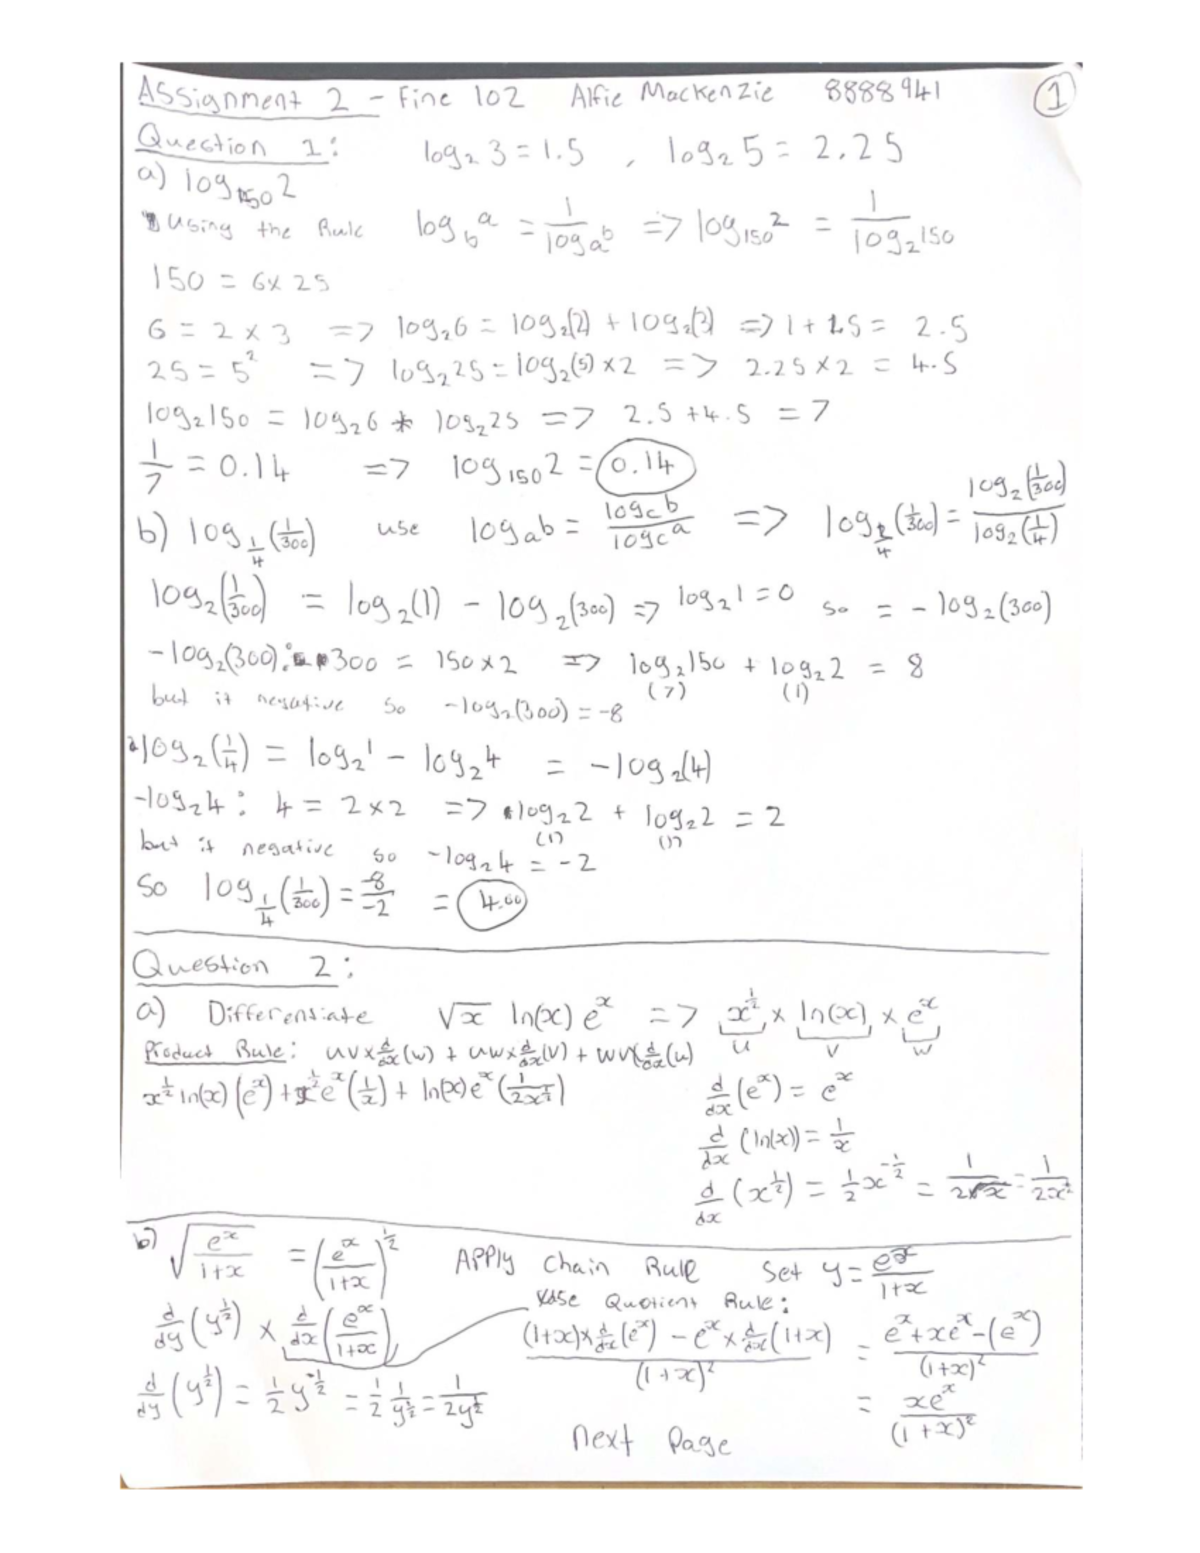 Assignment 2 - Finc 102 Alfie Mackenzie 8888941 1
Question 1: log₂ 3 = 1.5 , log₂ 5 = 2.25
a) log₁₅₀ 2
Using the Rule log_b a = 1/log_a b => log₁₅₀ 2 = 1/log₂ 150
150 = 6 x 25
6 = 2 x 3 => log₂6 = log₂(2) + log₂(3) => 1 + 1.5 = 2.5
25 = 5² => log₂25 = log₂(5) x 2 => 2.25 x 2 = 4.5
log₂150 = log₂6 * log₂25 => 2.5 + 4.5 = 7
1/7 = 0.14 => log₁₅₀ 2 = 0.14
b) log_1/4 (1/300) use log_a b = log_c b / log_c a => log_1/4 (1/300) = log₂(1/300) / log₂(1/4)
log₂(1/300) = log₂(1) - log₂(300) => log₂1 = 0 so = - log₂(300)
- log₂(300): 300 = 150 x 2 => log₂150 + log₂2 = 8
(7) (1)
but it negative so - log₂(300) = -8
log₂(1/4) = log₂1 - log₂4 = - log₂(4)
- log₂4: 4 = 2 x 2 => log₂2 + log₂2 = 2
(1) (1)
but it negative so - log₂4 = -2
So log_1/4 (1/300) = -8/-2 = 4.00
Question 2:
a) Differentiate √x ln(x) eˣ => x^½ x ln(x) x eˣ
u v w
Product Rule: uv x d/dx(w) + uw x d/dx(v) + wv x d/dx(u)
x^½ ln(x)(eˣ) + x^½ eˣ(1/x) + ln(x)eˣ(1/2x^½) d/dx(eˣ) = eˣ
d/dx(ln(x)) = 1/x
d/dx(x^½) = ½x^-½ = 1/2√x = 1/2x^½
b) √(eˣ/1+x) = (eˣ/1+x)^½ Apply Chain Rule Set y = eˣ/1+x
Use Quotient Rule:
d/dy(y^½) x d/dx(eˣ/1+x) (1+x) x d/dx(eˣ) - eˣ x d/dx(1+x) / (1+x)² = eˣ + xeˣ - (eˣ) / (1+x)²
d/dy(y^½) = ½y^-½ = ½ 1/y^½ = 1/2y^½ = xeˣ/(1+x)²
Next Page